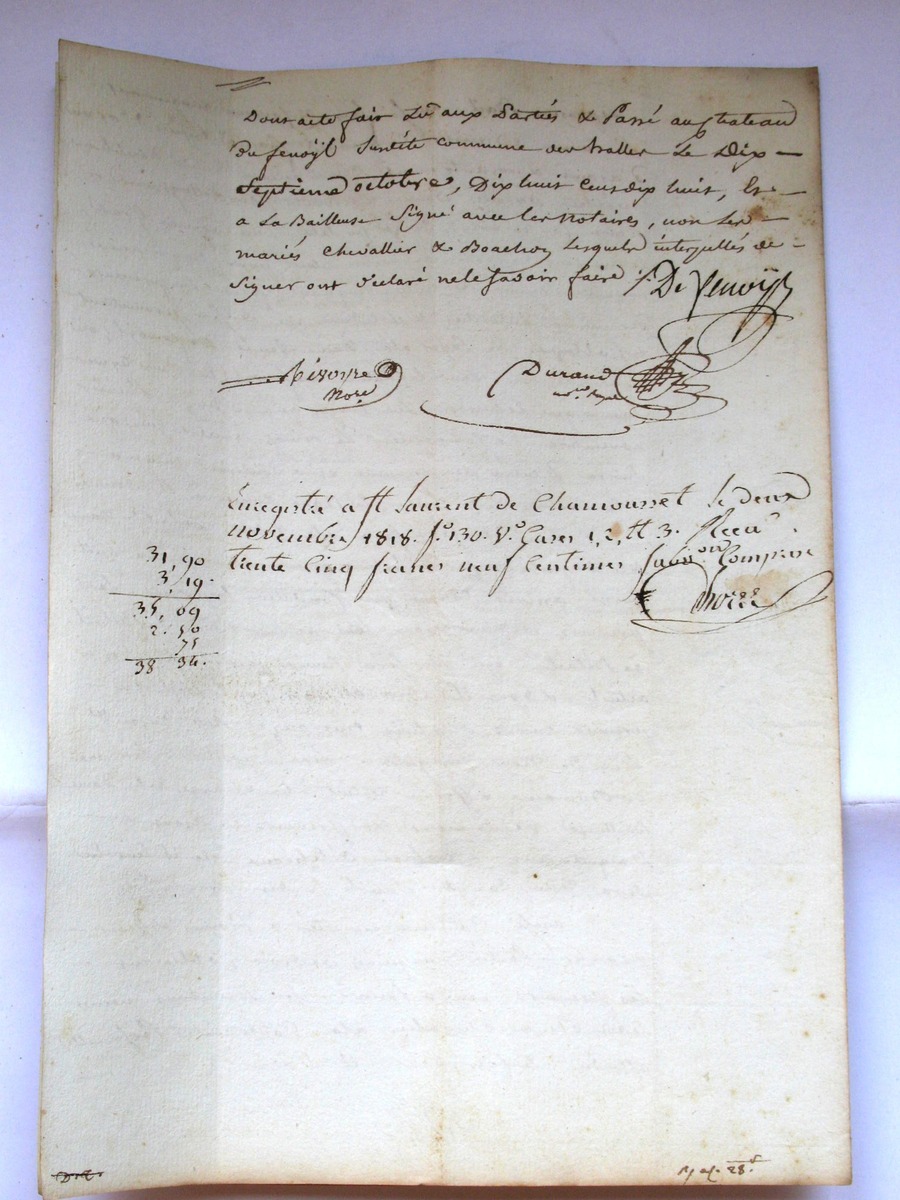 Dont acte fait Lu aux Parties & Passé au chateau
du fenoÿl Susdite commune des halles Le Dix
Septieme octobre, Dix huit cent dix huit, Et
a La Bailleuse Signé avec les notaires, non les
mariés Chevallier & Boachon Lesquels interpellés de
Signer ont declaré ne le Savoir faire /. De fenoÿl
Nore
Durand
Enregistré a St Laurent de Chamousset le deux
novembre 1818. fo. 130. Vo. Cases 1, 2, & 3. Recu
trente Cinq francs neuf Centimes Subvon Comprise
31, 90
3, 19.
35, 09
2. 50
75
38 34.